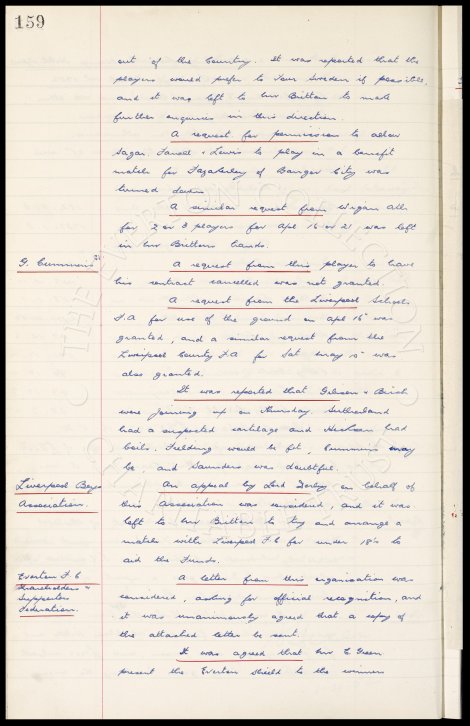 159
out of the Country. It was reported that the
players would prefer to tour Sweden if possible,
and it was left to Mr Britton to make
further enquiries in this direction.
A request for permission to allow
Sagar, Farrall & Lewis to play in a benefit
match for Fazackerley of Bangor City was
turned down.
A similar request from Wigan Ath
for 2 or 3 players for Apl 16 or 21 was left
in Mr Brittons hands.
G. Cummins
A request from this player to have
his contract cancelled was not granted.
A request from the Liverpool Schools
F.A for use of the ground on Apl 16 was
granted, and a similar request from the
Liverpool County F.A for Sat May was
also granted.
It was reported that Gibson & Birch
were joining up on Thursday. Sutherland
had a suspected cartilage and had
boils. Fielding would be fit, Cummins may
be, and Saunders was doubtful.
Liverpool Boys
Association.
An appeal by Lord Derby on behalf of
this Association was considered, and it was
left to Mr Britton to try and arrange a
match with Liverpool F.C for under 18's to
aid the Funds.
Everton F.C
Shareholders &
Supporters
Federation.
A letter from this organisation was
considered, asking for official recognition, and
it was unanimously agreed that a copy of
the attached letter be sent.
It was agreed that Mr C Green
present the Everton Shield to the winners
THE EVERTON COLLECTION